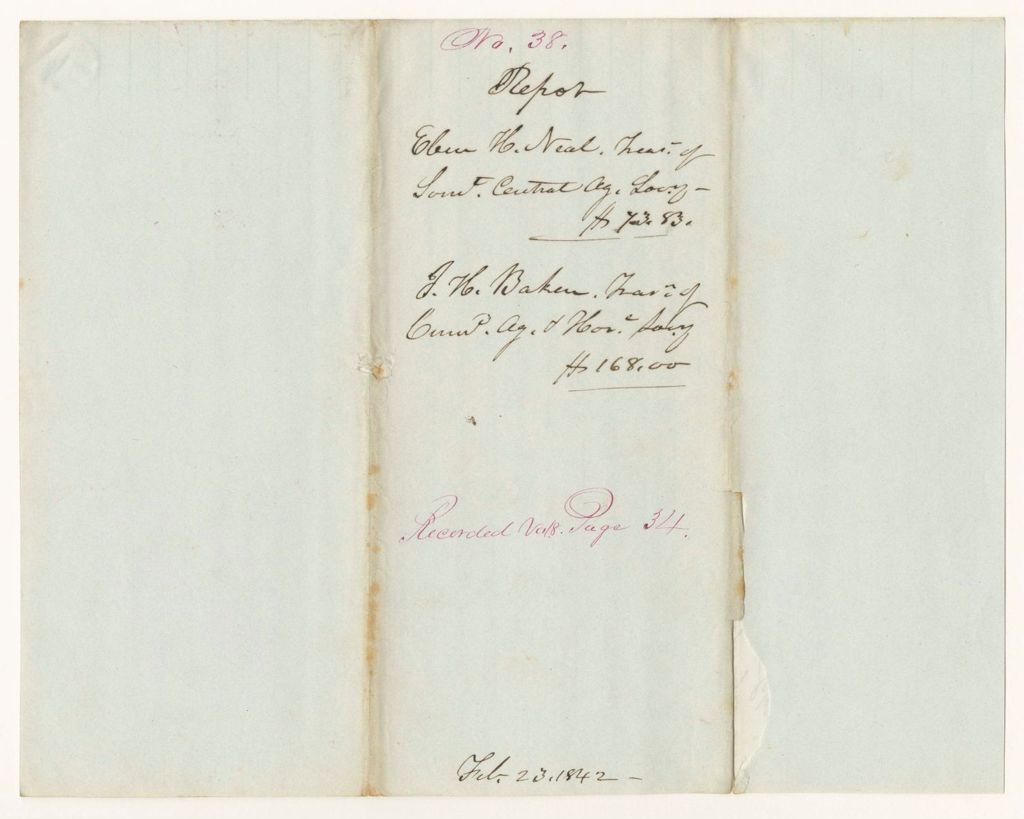 No. 38.
Report
Eben H. Neal. Treasr of
Somt. Central Ag. Socy —
$ 73.83.
J. H. Baker. Treasr of
Cumd. Ag. & Hort. Socy
$ 168.00
Recorded Vol 8. Page 34.
Feb. 23. 1842 —